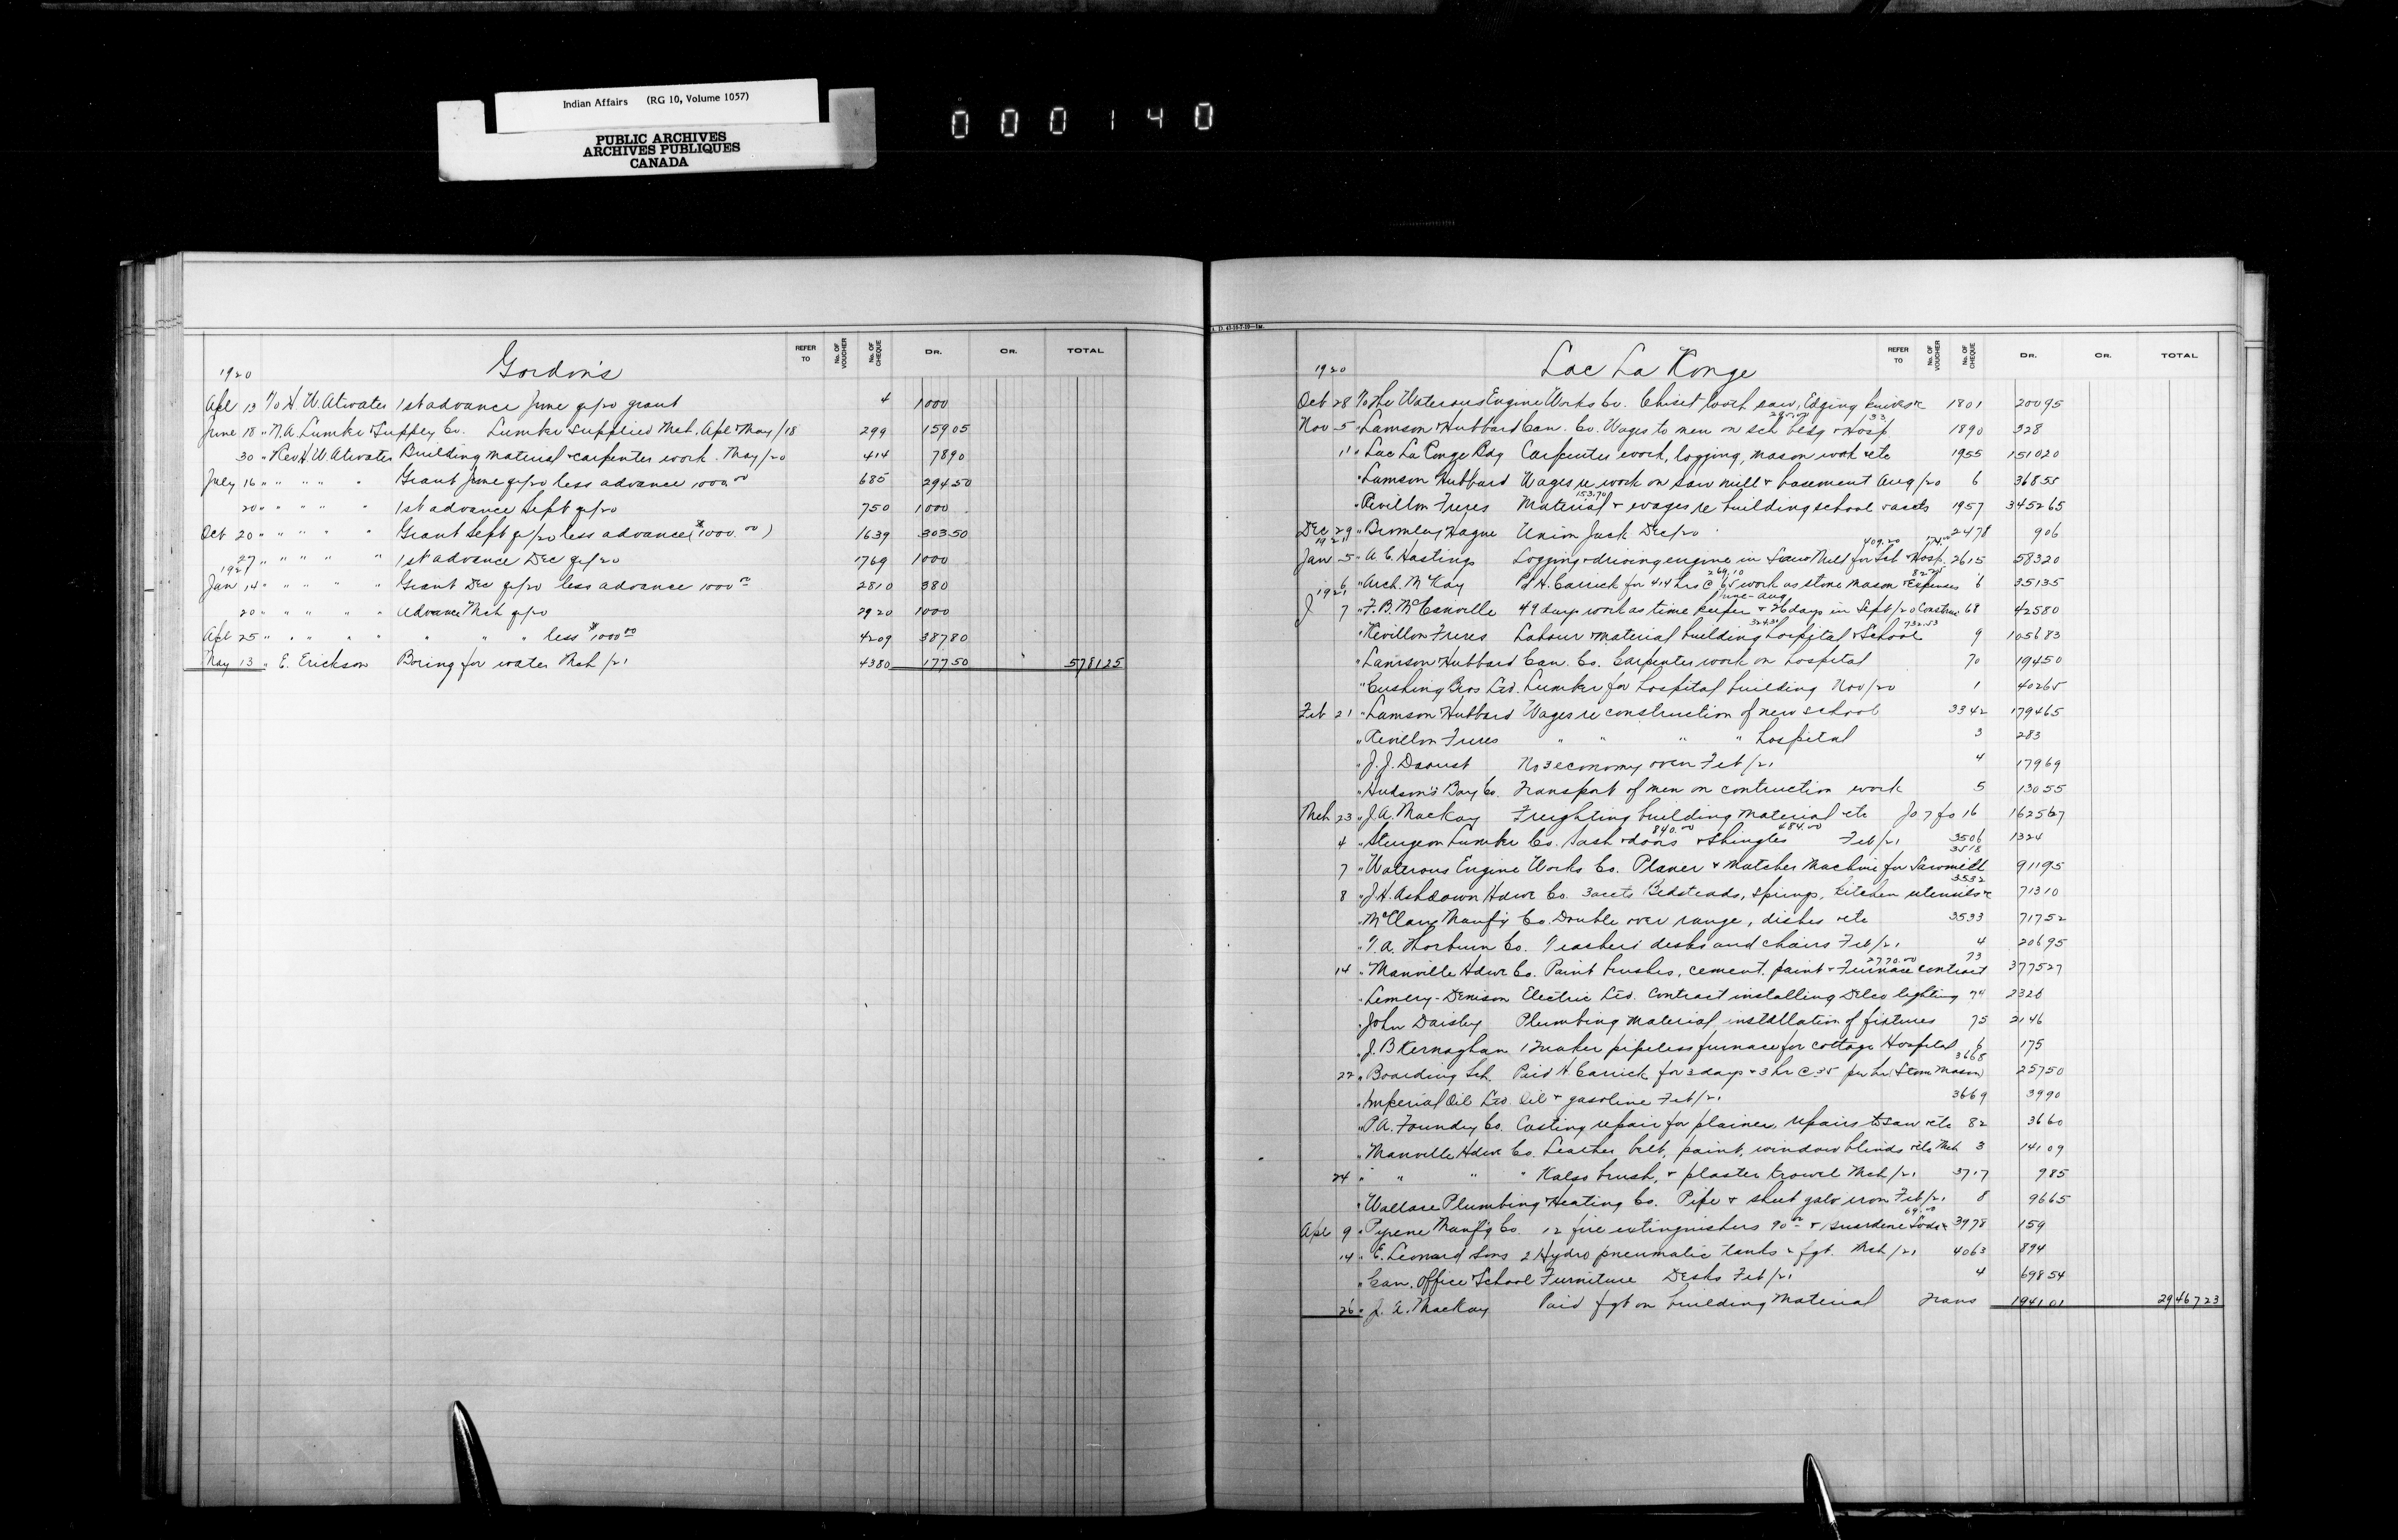 Indian Affairs (RG 10, Volume 1057)
PUBLIC ARCHIVES
ARCHIVES PUBLIQUES
CANADA
000140
REFER TO No. OF VOUCHER No. OF CHEQUE DR. CR. TOTAL
Gordon's
1920
Apl 13 To H. W. Atwater 1st advance June qr/20 grant 4 1000
June 18 " N.A. Lumber Supply Co. Lumber supplied Mch, Apl & May/18 299 159 05
30 " Rev. H. W. Atwater Building material & carpenter work. May/20 414 78 90
July 16 " " " " " Grant June qr/20 less advance 1000.00 685 294 50
20 " " " " " 1st advance Sept qr/20 750 1000
Oct 20 " " " " " Grant Sept qr/20 less advance ($1000.00) 1639 303 50
27 " " " " " 1st advance Dec qr/20 1769 1000
1921
Jan 14 " " " " " Grant Dec qr/20 less advance 1000.00 2810 380
20 " " " " " Advance Mch qr/20 2920 1000
Apl 25 " " " " " " " " less $1000.00 4209 387 80
May 13 " E. Erickson Boring for water Mch/21 4380 177 50 5781 25
REFER TO No. OF VOUCHER No. OF CHEQUE DR. CR. TOTAL
Lac La Ronge
1920
Oct 28 To The Waterous Engine Works Co. Chisel tooth saw, Edging knives &c 1801 200 95
Nov 5 " Lamson Hubbard Can. Co. Wages to men on sch bldg & Hosp. 133 1890 328
11 " Lac La Ronge Bdg Carpenter work, logging, mason work etc 1955 1510 20
" Lamson Hubbard Wages re work on saw mill & basement Aug/20 6 368 55
" Revillon Freres Material 153.70 & wages re building school & accts 1957 3452 65
Dec 29 " Bromley Hague Union Jack Dec/20 2478 9 06
1921
Jan 5 " A. E. Hastings Logging & driving engine in Saw Mill for Sch 409.20 & Hosp. 174.00 2615 583 20
6 " Arch. McKay Pd H. Carrick for 414 hrs @ 65 269.10 work as stone mason & Expenses 82.25 6 351 35
1921
J 7 " F. B. 49 days work as time keeper June-Aug & 26 days in Sept/20 Construc 68 425 80
" Revillon Freres Labour & material building hospital 324.30 & School 732.53 9 1056 83
" Lamson Hubbard Can. Co. Carpenter work on hospital 70 194 50
" Cushing Bros Ltd. Lumber for hospital building Nov/20 1 402 65
Feb 21 " Lamson Hubbard Wages re construction of new school 3342 1794 65
" Revillon Freres " " " " hospital 3 283
" J. J. Daoust No 3 economy oven Feb/21 4 179 69
" Hudson's Bay Co. Transport of men on contruction work 5 130 55
Mch 23 " J. A. Mackay Freighting building material etc Jo 7 fo 16 1625 67
4 " Sturgeon Lumber Co. Sash & doors 840.00 & shingles 484.00 Feb/21 3506 1324
7 " Waterous Engine Works Co. Planer & Matcher Machine for Sawmill 3518 911 95
8 " J. H. Ashdown Hdwe Co. 3 accts Bedsteads, springs, kitchen utensils &c 3532 713 10
" McClary Manfg Co. Double oven range, dishes etc 3533 717 52
" T. A. Thorburn Co. Teachers' desks and chairs Feb/21 4 206 95
14 " Manville Hdwe Co. Paint brushes, cement, paint & Furnace contract 2770.00 73 3775 27
" Lemery-Denison Electric Ltd. Contract installing Delco lighting 74 2326
" John Daisley Plumbing material, installation of fixtures 75 2146
" J. B. Kernaghan 1 Quaker pipeless furnace for cottage Hospital 6 175
22 " Boarding Sch. Paid H. Carrick for 3 days & 3 hr @ 35 per hr (Stone Mason) 3668 257 50
" Imperial Oil Ltd. Oil & gasoline Feb/21 3669 39 90
" P.A. Foundry Co. Casting repair for plainer, repairs to saw etc 82 36 60
" Manville Hdwe Co. Leather belt, paint, window blinds etc Mch 3 141 09
24 " " " " Kalso brush, & plaster trowel Mch/21 3717 9 85
" Wallace Plumbing & Heating Co. Pipe & sheet galv iron Feb/21 8 96 65
Apl 9 " Pyrene Manfg Co. 12 fire extinguishers 90.00 & Guardene Soda &c 69.00 3978 159
14 " E. Leonard & Sons 2 Hydro pneumatic tanks & fgt. Mch/21 4063 894
" Can. Office & School Furniture Desks Feb/21 4 698 54
26 " J. A. Mackay Paid fgt on building material Trans 1941 01 29467 23